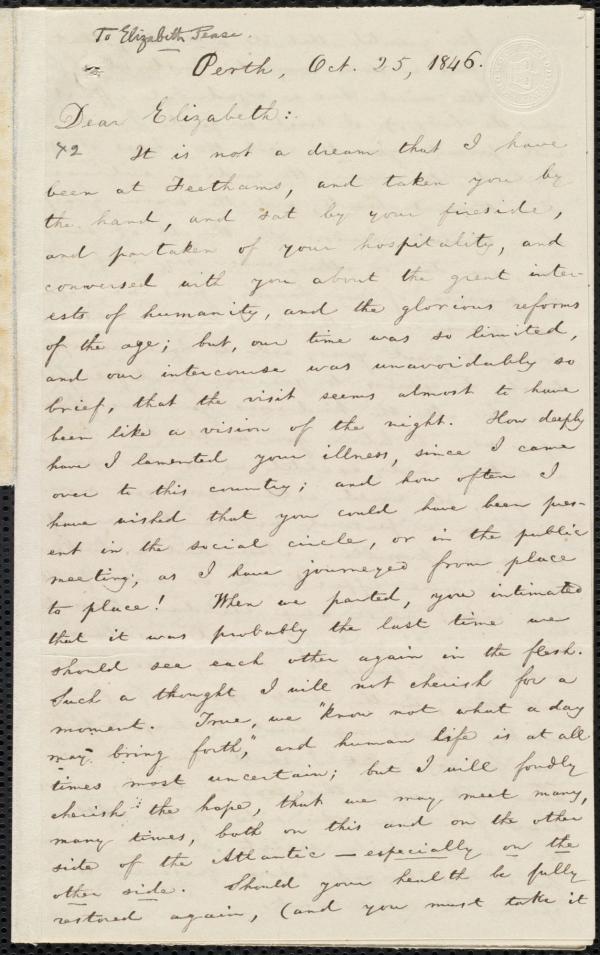 To Elizabeth Pease.
Perth, Oct. 25, 1846.
Dear Elizabeth:
42 It is not a dream that I have
been at Feethams, and taken you by
the hand, and sat by your fireside,
and partaken of your hospitality, and
conversed with you about the great inter-
ests of humanity, and the glorious reforms
of the age; but, our time was so limited,
and our intercourse was unavoidably so
brief, that the visit seems almost to have
been like a vision of the night. How deeply
have I lamented your illness, since I came
over to this country; and how often I
have wished that you could have been pres-
ent in the social circle, or in the public
meeting, as I have journeyed from place
to place! When we parted, you intimated
that it was probably the last time we
should see each other again in the flesh.
Such a thought I will not cherish for a
moment. True, we "know not what a day
may bring forth," and human life is at all
times most uncertain; but I will fondly
cherish the hope, that we may meet many,
many times, both on this and on the other
side of the Atlantic — especially on the
other side. Should your health be fully
restored again, (and you must take it